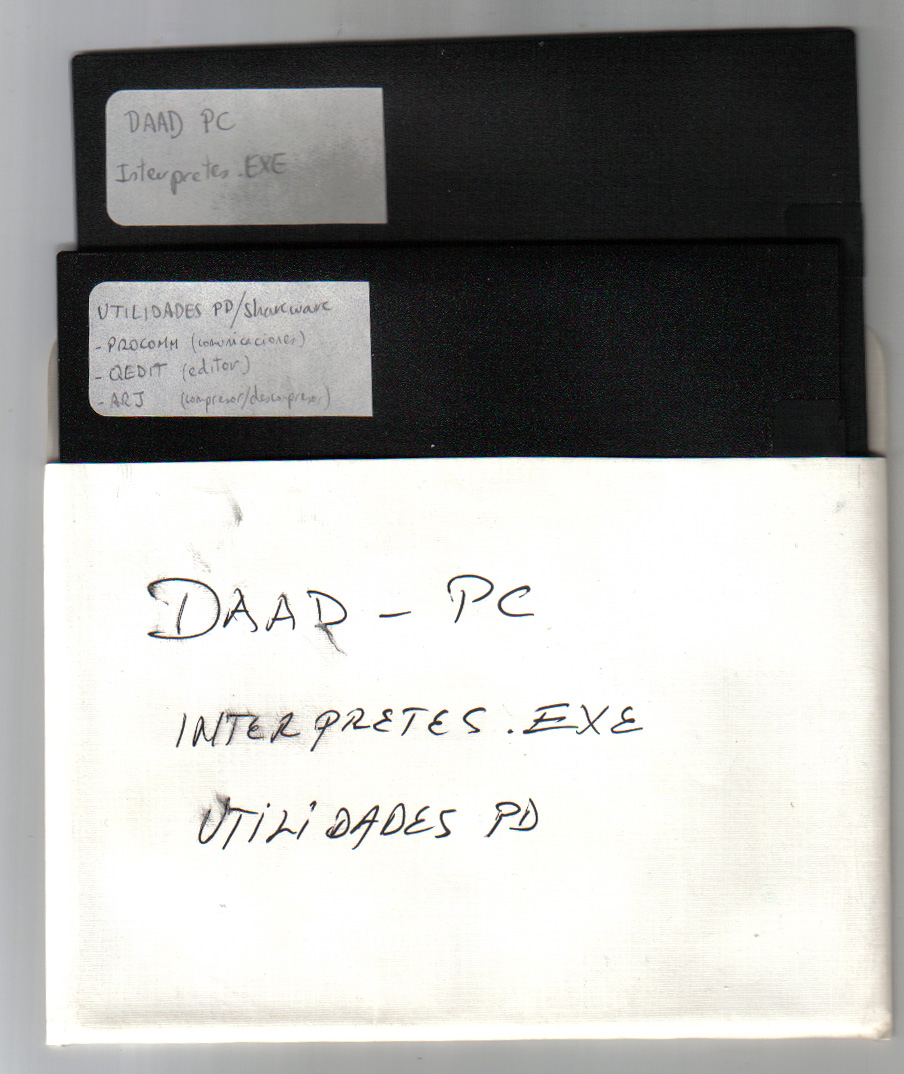 DAAD PC
Interpretes.EXE
UTILIDADES PD/shareware
- PROCOMM (comunicaciones)
- QEDIT (editor)
- ARJ (compresor/descompresor)
DAAD - PC
INTERPRETES.EXE
UTILIDADES PD